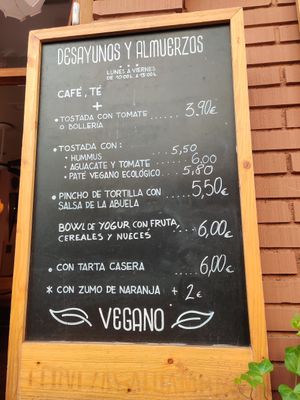 DESAYUNOS Y ALMUERZOS
LUNES A VIERNES
DE 10:00 h A 13:00 h.
CAFÉ, TÉ
+
• TOSTADA CON TOMATE ...... 3,90€
O BOLLERIA
• TOSTADA CON:
• HUMMUS 5,50
• AGUACATE Y TOMATE ... 6,00
• PATÉ VEGANO ECOLÓGICO. 5,80
• PINCHO DE TORTILLA CON 5,50€
SALSA DE LA ABUELA
BOWL DE YOGUR CON FRUTA,
CEREALES Y NUECES .... 6,00€
• CON TARTA CASERA ..... 6,00€
* CON ZUMO DE NARANJA + 2€
VEGANO